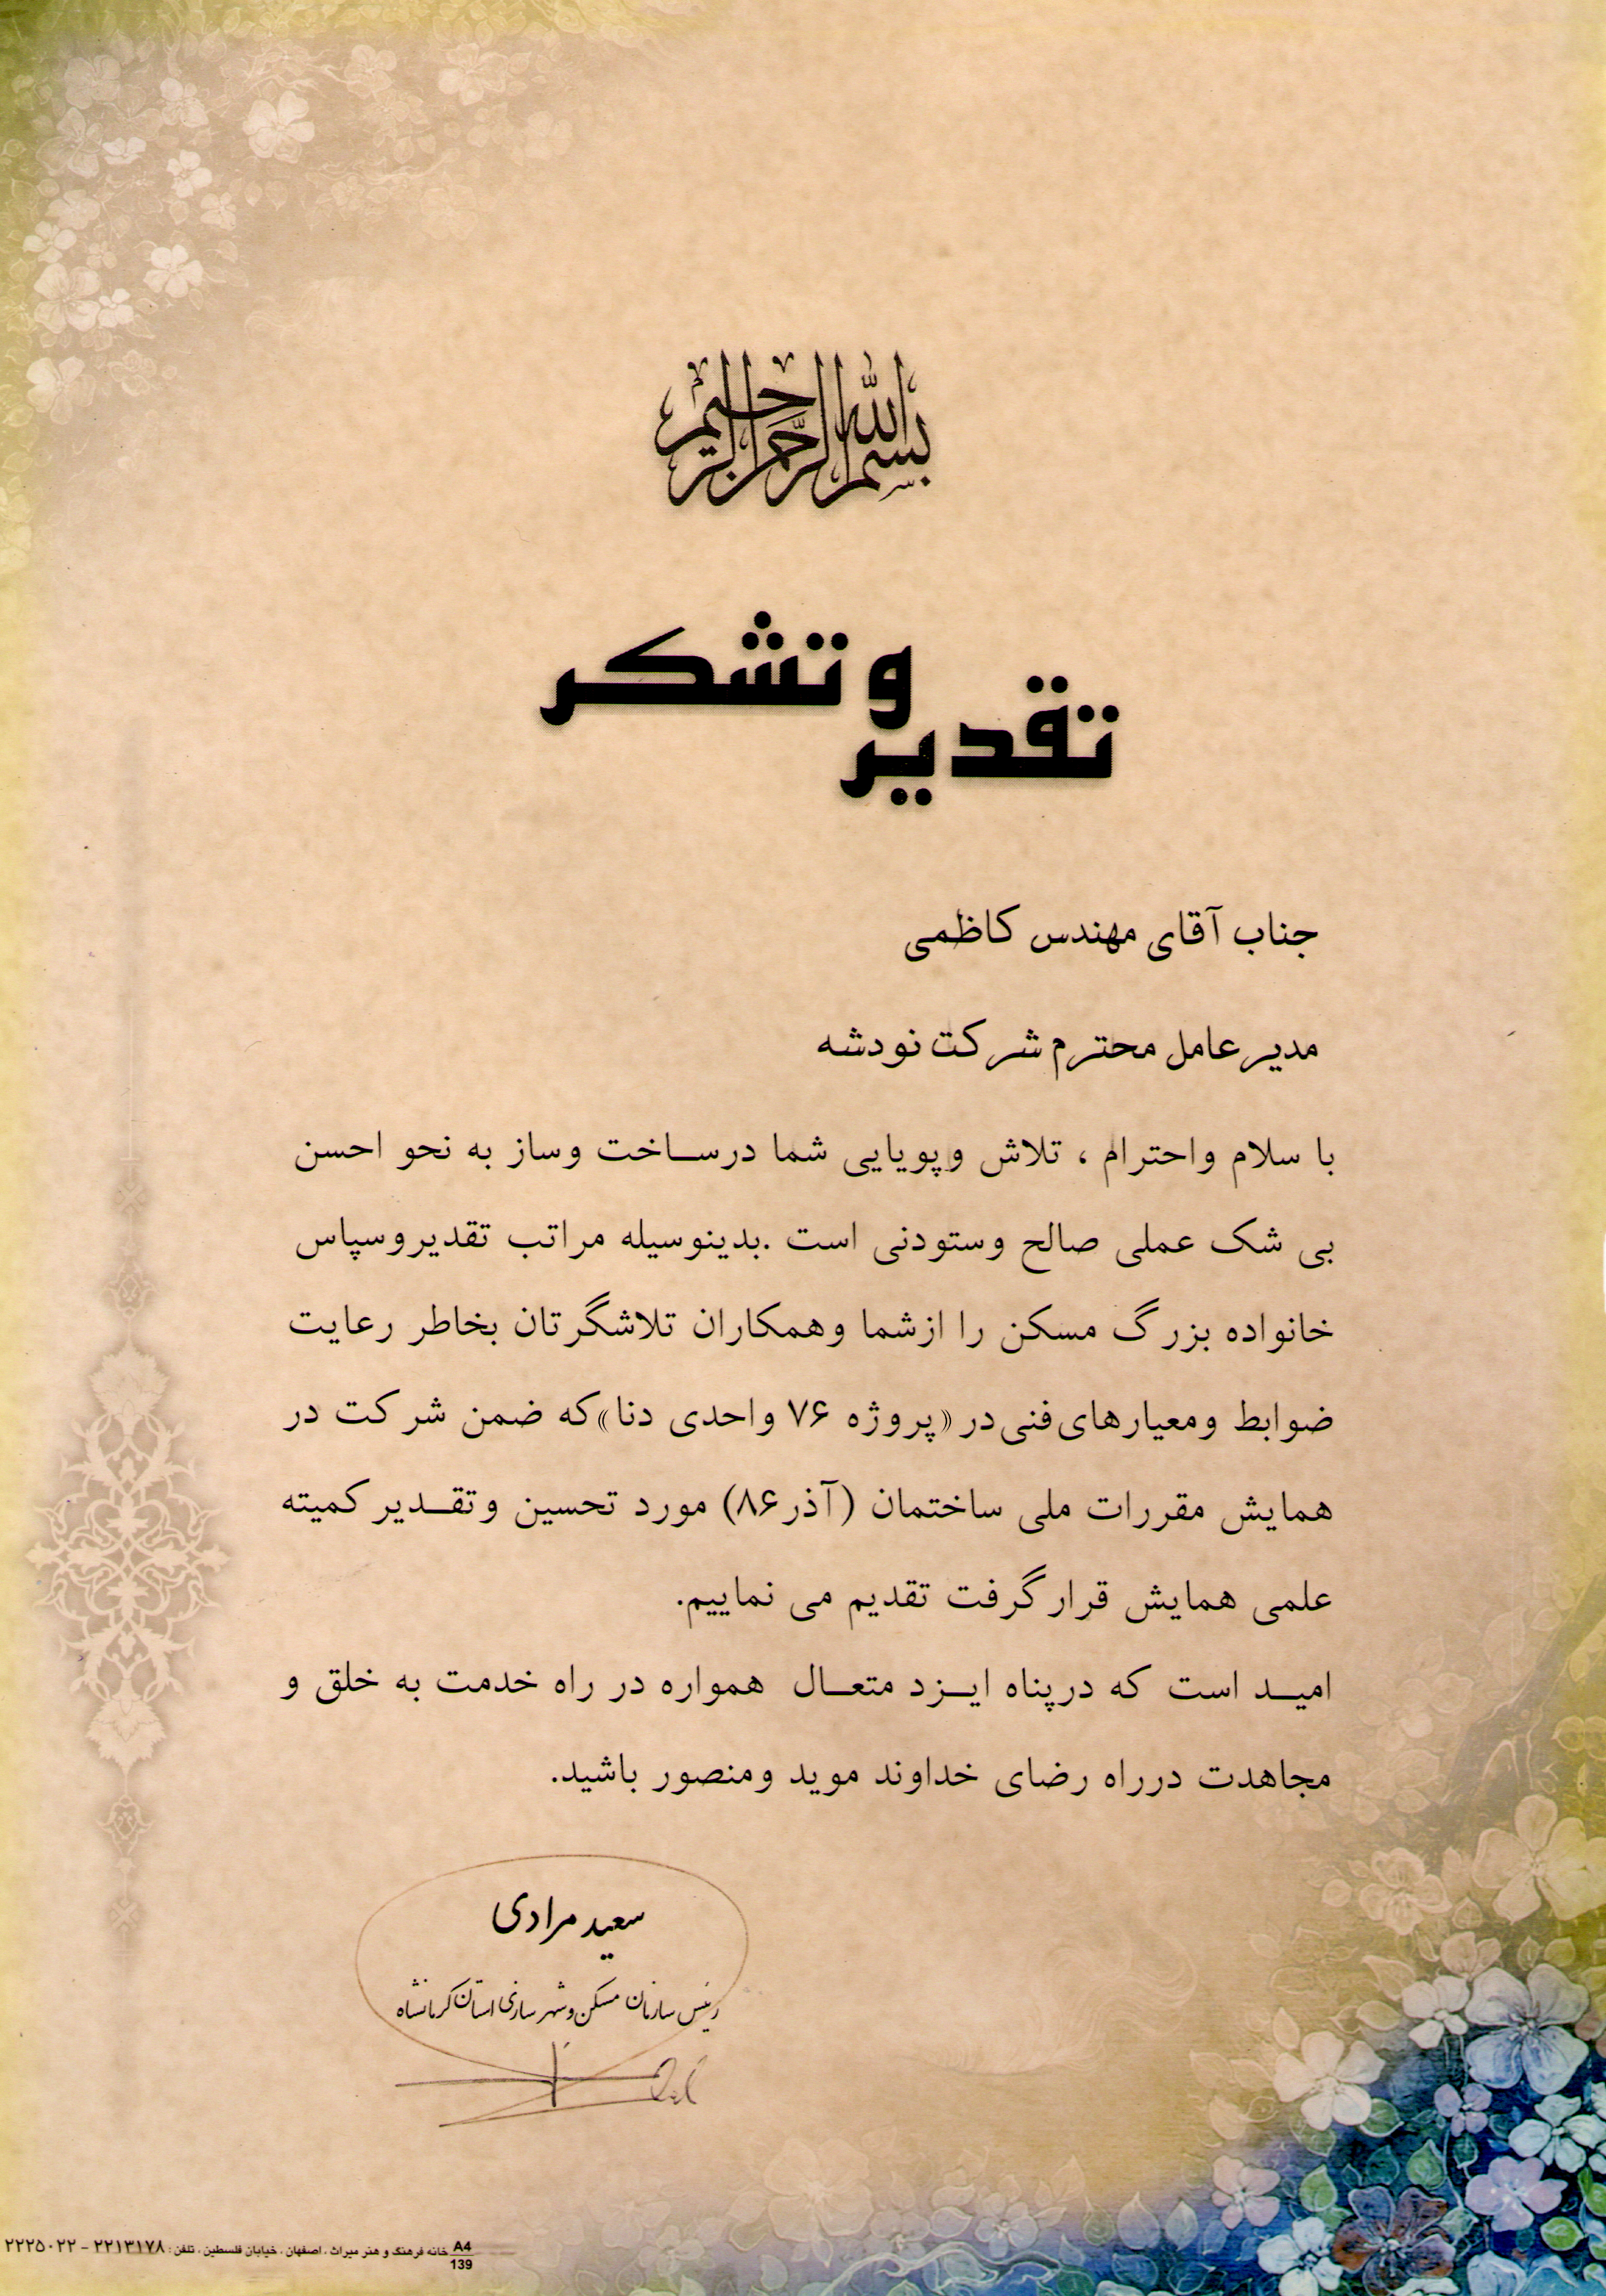 بسم الله الرحمن الرحیم
تقدیر و تشکر
جناب آقای مهندس کاظمی
مدیرعامل محترم شرکت نودشه
با سلام واحترام ، تلاش وپویایی شما درساخت وساز به نحو احسن
بی شک عملی صالح وستودنی است .بدینوسیله مراتب تقدیروسپاس
خانواده بزرگ مسکن را ازشما وهمکاران تلاشگرتان بخاطر رعایت
ضوابط ومعیارهای فنی در «پروژه ۷۶ واحدی دنا» که ضمن شرکت در
همایش مقررات ملی ساختمان (آذر۸۶) مورد تحسین وتقدیر کمیته
علمی همایش قرار گرفت تقدیم می نماییم.
امید است که درپناه ایزد متعال همواره در راه خدمت به خلق و
مجاهدت درراه رضای خداوند موید ومنصور باشید.
سعید مرادی
رئیس سازمان مسکن و شهرسازی استان کرمانشاه
A4 خانه فرهنگ و هنر میراث ، اصفهان ، خیابان فلسطین ، تلفن : ۲۲۱۳۱۷۸ - ۲۲۲۵۰۲۲
139